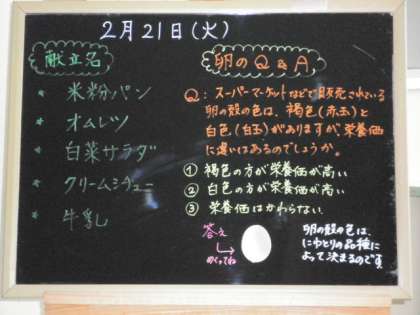 2月21日(火)
献立名
* 米粉パン
* オムレツ
* 白菜サラダ
* クリームシチュー
* 牛乳
卵のQ&A
Q: スーパーマーケットなどで販売されている
卵の殻の色は、褐色(赤玉)と
白色(白玉)がありますが、栄養価
に違いはあるのでしょうか。
① 褐色の方が栄養価が高い
② 白色の方が栄養価が高い
③ 栄養価はかわらない
答え
めくってね
卵の殻の色は、
にわとりの品種に
よって決まるのです